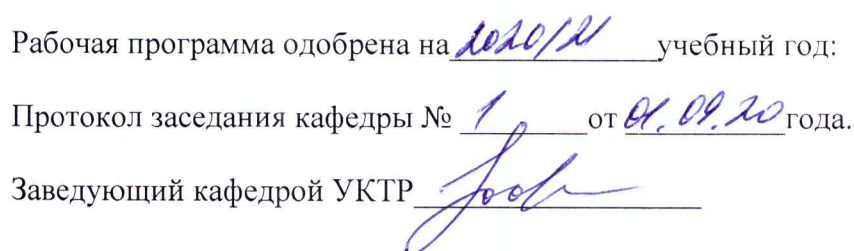 Рабочая программа одобрена на 2020/21 учебный год:
Протокол заседания кафедры № 1 от 01.09.20 года.
Заведующий кафедрой УКТР